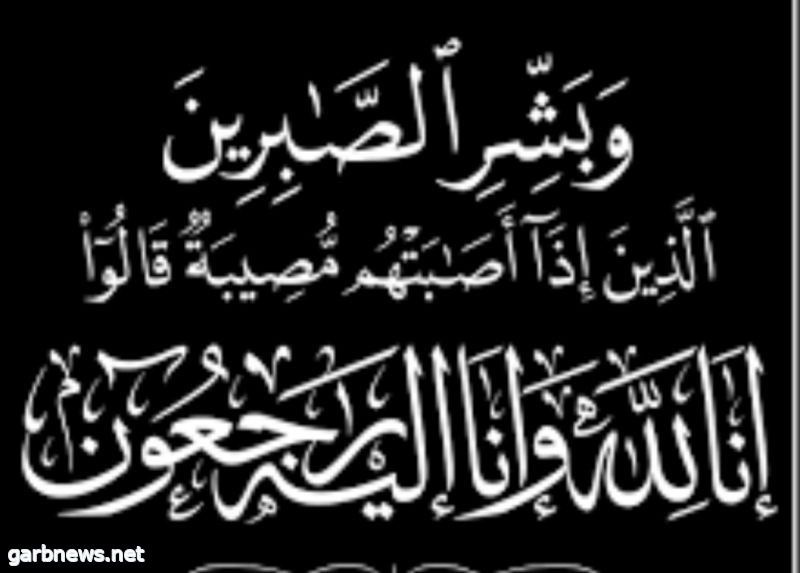 وَبَشِّرِ ٱلصَّٰبِرِينَ
ٱلَّذِينَ إِذَآ أَصَٰبَتْهُم مُّصِيبَةٌ قَالُوٓا۟
إنا لله وإنا إليه راجعون
garbnews.net